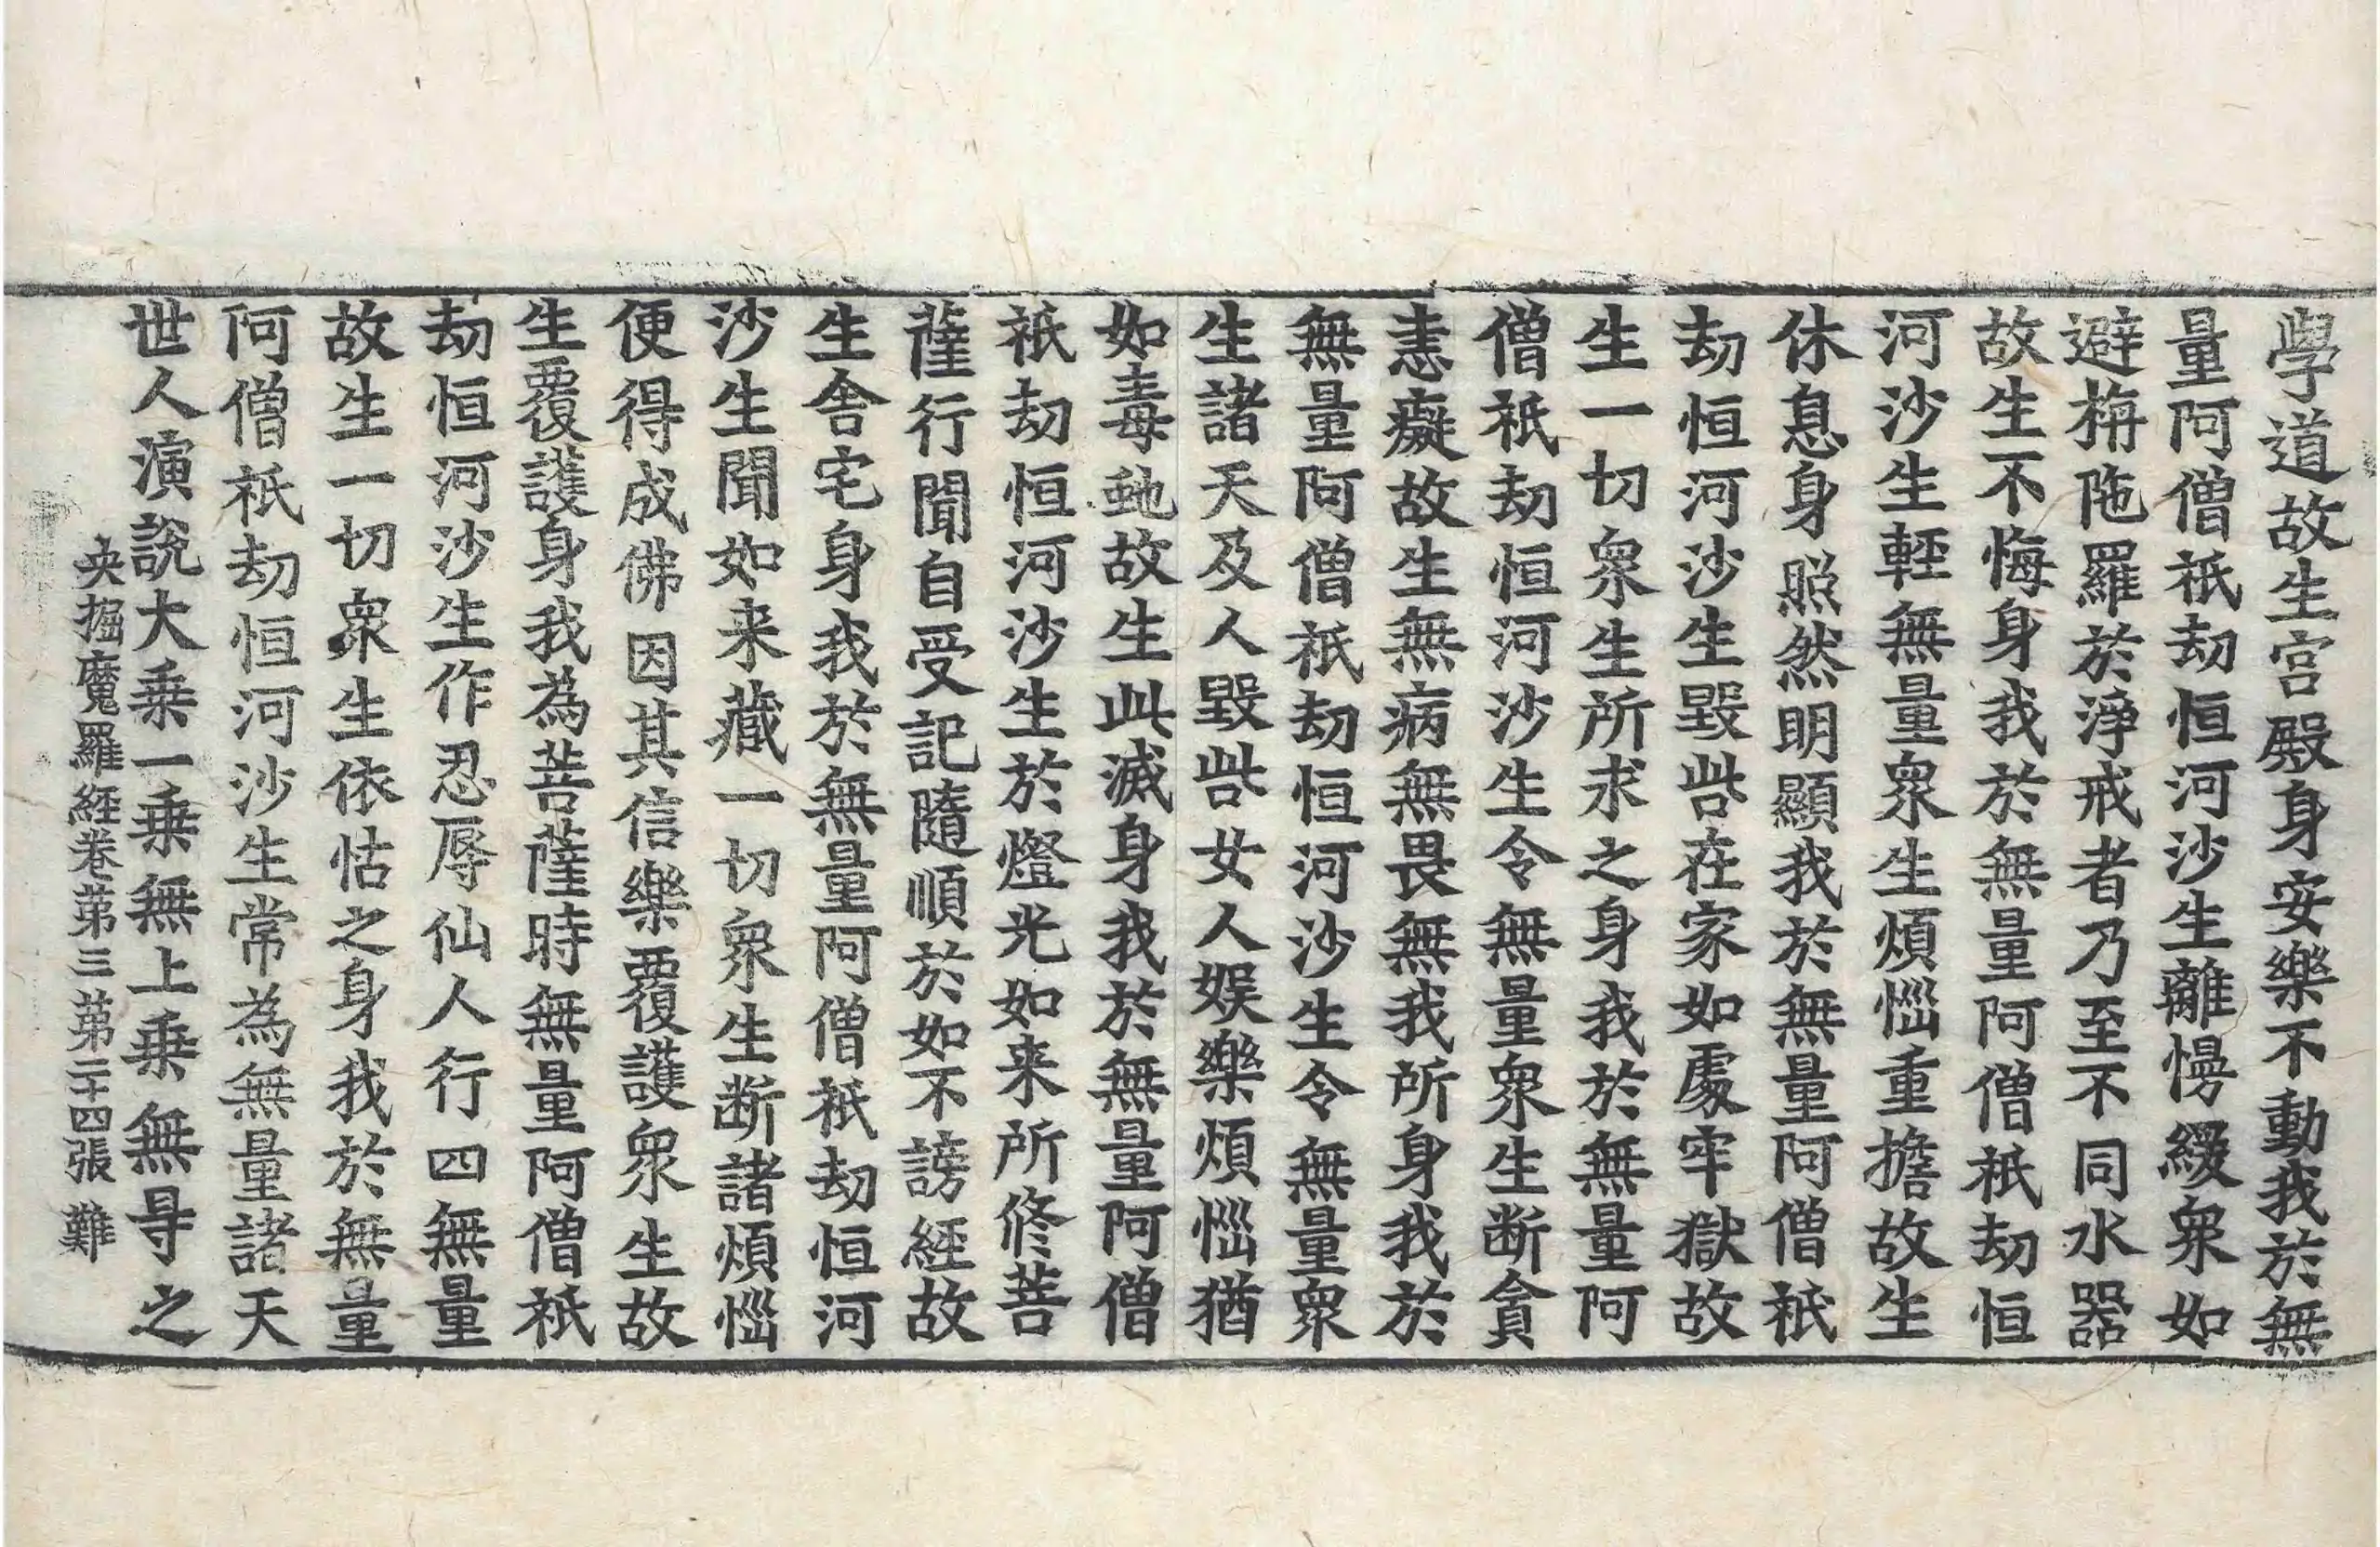 學道故生宮殿身安樂不動我於無
量阿僧祇劫恒河沙生離慢緩衆如
避栴陁羅於淨戒者乃至不同水器
故生不悔身我於無量阿僧祇劫恒
河沙生輕無量衆生煩惱重擔故生
休息身照然明顯我於無量阿僧祇
劫恒河沙生毀呰在家如處牢獄故
生一切衆生所求之身我於無量阿
僧祇劫恒河沙生令無量衆生断貪
恚癡故生無病無畏無我所身我於
無量阿僧祇劫恒河沙生令無量衆
生諸天及人毀呰女人娛樂煩惱猶
如毒虵故生此滅身我於無量阿僧
祇劫恒河沙生於燈光如来所修菩
薩行聞自受記隨順於如不謗經故
生舍宅身我於無量阿僧祇劫恒河
沙生聞如来藏一切衆生断諸煩惱
便得成佛因其信樂覆護衆生故
生覆護身我為菩薩時無量阿僧祇
劫恒河沙生作忍辱仙人行四無量
故生一切衆生依怙之身我於無量
阿僧祇劫恒河沙生常為無量諸天
世人演說大乗一乗無上乗無㝵之
央掘魔羅經卷苐三 苐二十四張 難